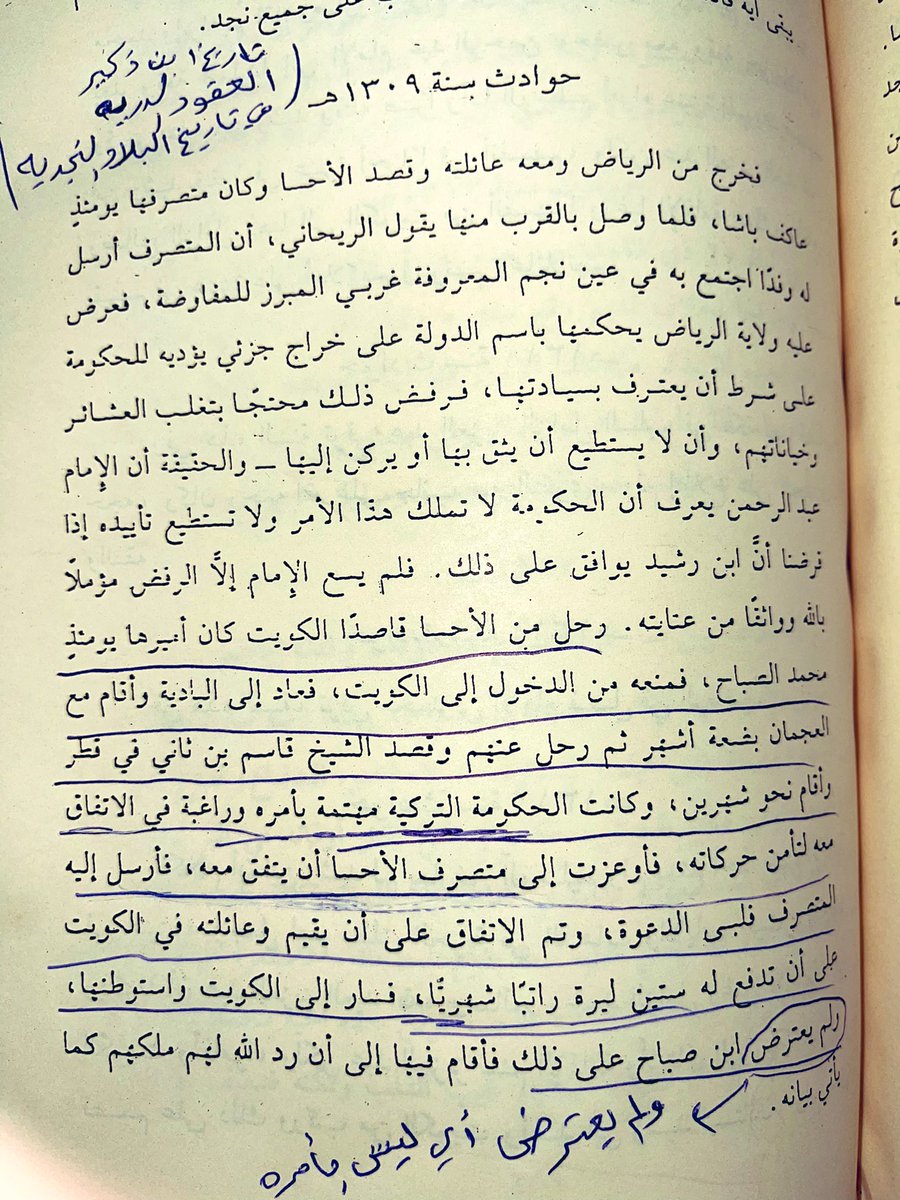 يأتي
على جميع نجد.
تاريخ ابن ذكير
العقود الدريه
في تاريخ البلاد النجديه
حوادث سنة ١٣٠٩ هـ
فخرج من الرياض ومعه عائلته وقصد الأحسا وكان متصرفها يومئذٍ
عاكف باشا، فلما وصل بالقرب منها يقول الريحاني، أن المتصرف أرسل
له وفدًا اجتمع به في عين نجم المعروفة غربي المبرز للمفاوضة، فعرض
عليه ولاية الرياض يحكمها باسم الدولة على خراج جزئي يؤديه للحكومة
على شرط أن يعترف بسيادتها، فرفض ذلك محتجًا بتغلب العشائر
وخياناتهم، وأن لا يستطيع أن يثق بها أو يركن إليها ــ والحقيقة أن الإمام
عبد الرحمن يعرف أن الحكومة لا تملك هذا الأمر ولا تستطيع تأييده إذا
فرضنا أنَّ ابن رشيد يوافق على ذلك. فلم يسع الإمام إلاَّ الرفض مؤملًا
بالله وواثقًا من عنايته. رحل من الأحسا قاصدًا الكويت كان أميرها يومئذٍ
محمد الصباح، فمنعه من الدخول إلى الكويت، فعاد إلى البادية وأقام مع
العجمان بضعة أشهر ثم رحل عنهم وقصد الشيخ قاسم بن ثاني في قطر
وأقام نحو شهرين، وكانت الحكومة التركية مهتمة بأمره وراغبة في الاتفاق
معه لتأمن حركاته، فأوعزت إلى متصرف الأحسا أن يتفق معه، فأرسل إليه
المتصرف فلبى الدعوة، وتم الاتفاق على أن يقيم وعائلته في الكويت
على أن تدفع له ستين ليرة راتبًا شهريًّا، فسار إلى الكويت واستوطنها،
ولم يعترض ابن صباح على ذلك فأقام فيها إلى أن رد الله لهم ملكهم كما
يأتي بيانه.
ولم يعترض أي ليس بأمره